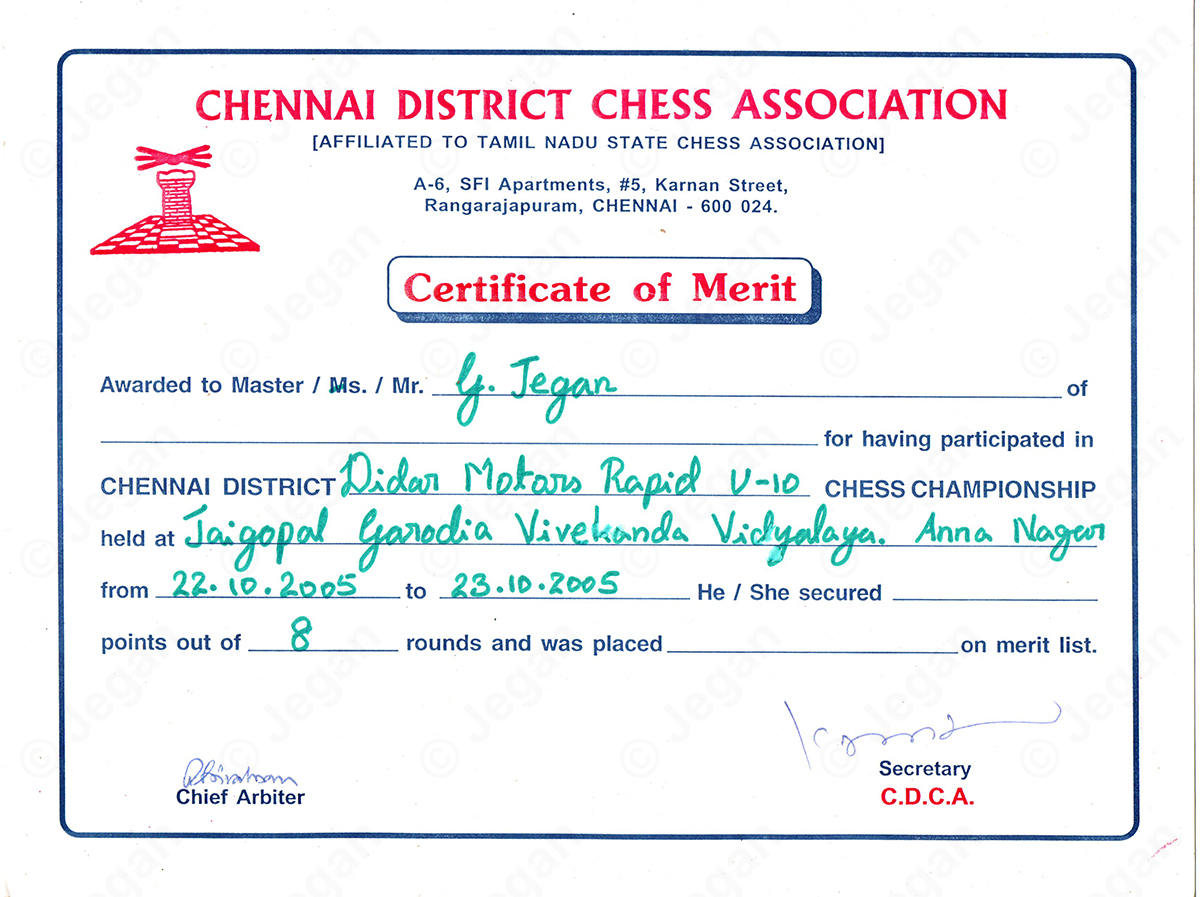 CHENNAI DISTRICT CHESS ASSOCIATION
[AFFILIATED TO TAMIL NADU STATE CHESS ASSOCIATION]
A-6, SFI Apartments, #5, Karnan Street,
Rangarajapuram, CHENNAI - 600 024.
Certificate of Merit
Awarded to Master / Ms. / Mr. G. Jegan of
for having participated in
CHENNAI DISTRICT Didar Motors Rapid U-10 CHESS CHAMPIONSHIP
held at Jaigopal Garodia Vivekanda Vidyalaya. Anna Nagar
from 22.10.2005 to 23.10.2005 He / She secured
points out of 8 rounds and was placed on merit list.
Chief Arbiter
Secretary
C.D.C.A.
© Jegan